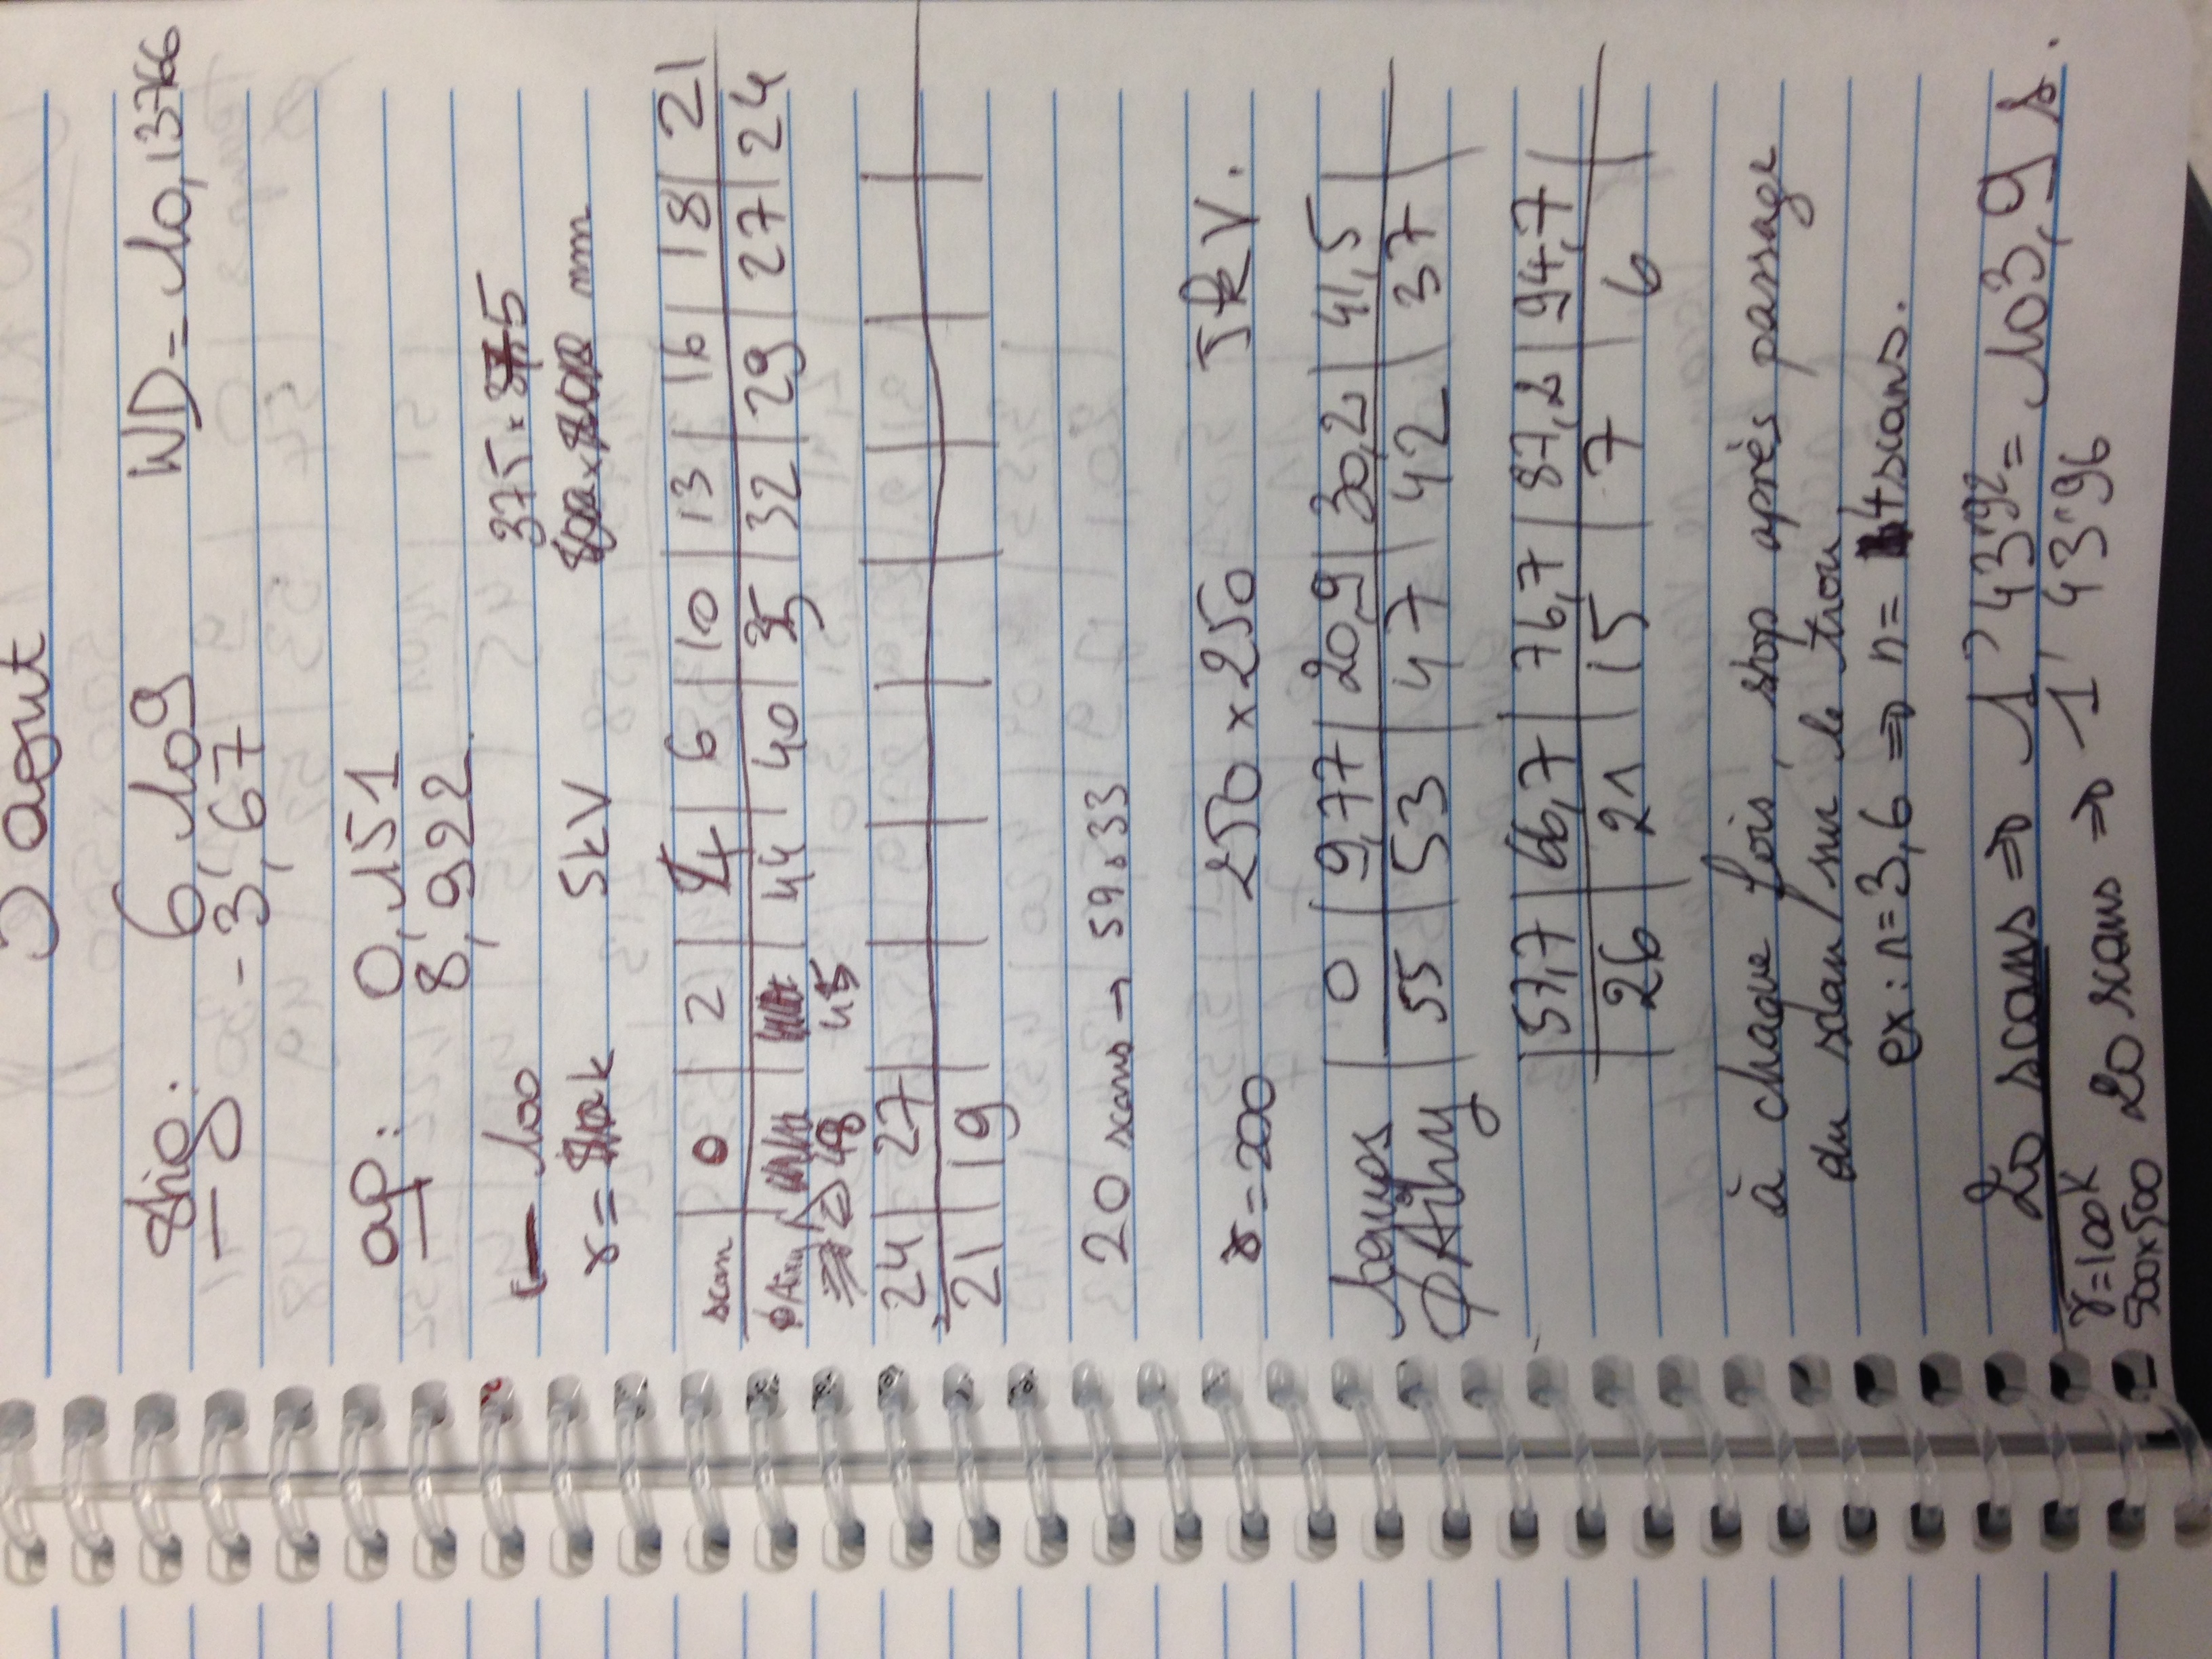 août
stig: 6,109 WD = 10,13766
-3,67
ap: 0,151
8,922
← 100 375 × 375
γ = k 5kV nm
scan | 0 | 2 | 4 | 6 | 10 | 13 | 16 | 18 | 21
ϕ Airy | 44 | 40 | 35 | 32 | 29 | 27 | 24
48 45
24 | 27
21 | 19
20 scans → 59s33
γ = 200 250 × 250 5kV.
temps | 0 | 9,77 | 20,9 | 30,2 | 41,5
ϕ Airy | 55 | 53 | 47 | 42 | 37
57,7 | 66,7 | 76,7 | 87,2 | 94,7
26 | 21 | 15 | 7 | 6
à chaque fois, stop après passage
du scan sur le trou.
ex: n=3,6 ⇒ n= 4 scans.
20 scans ⇒ 1' 43"92 = 103,9 s.
γ=100k
500×500 20 scans ⇒ 1' 43"96